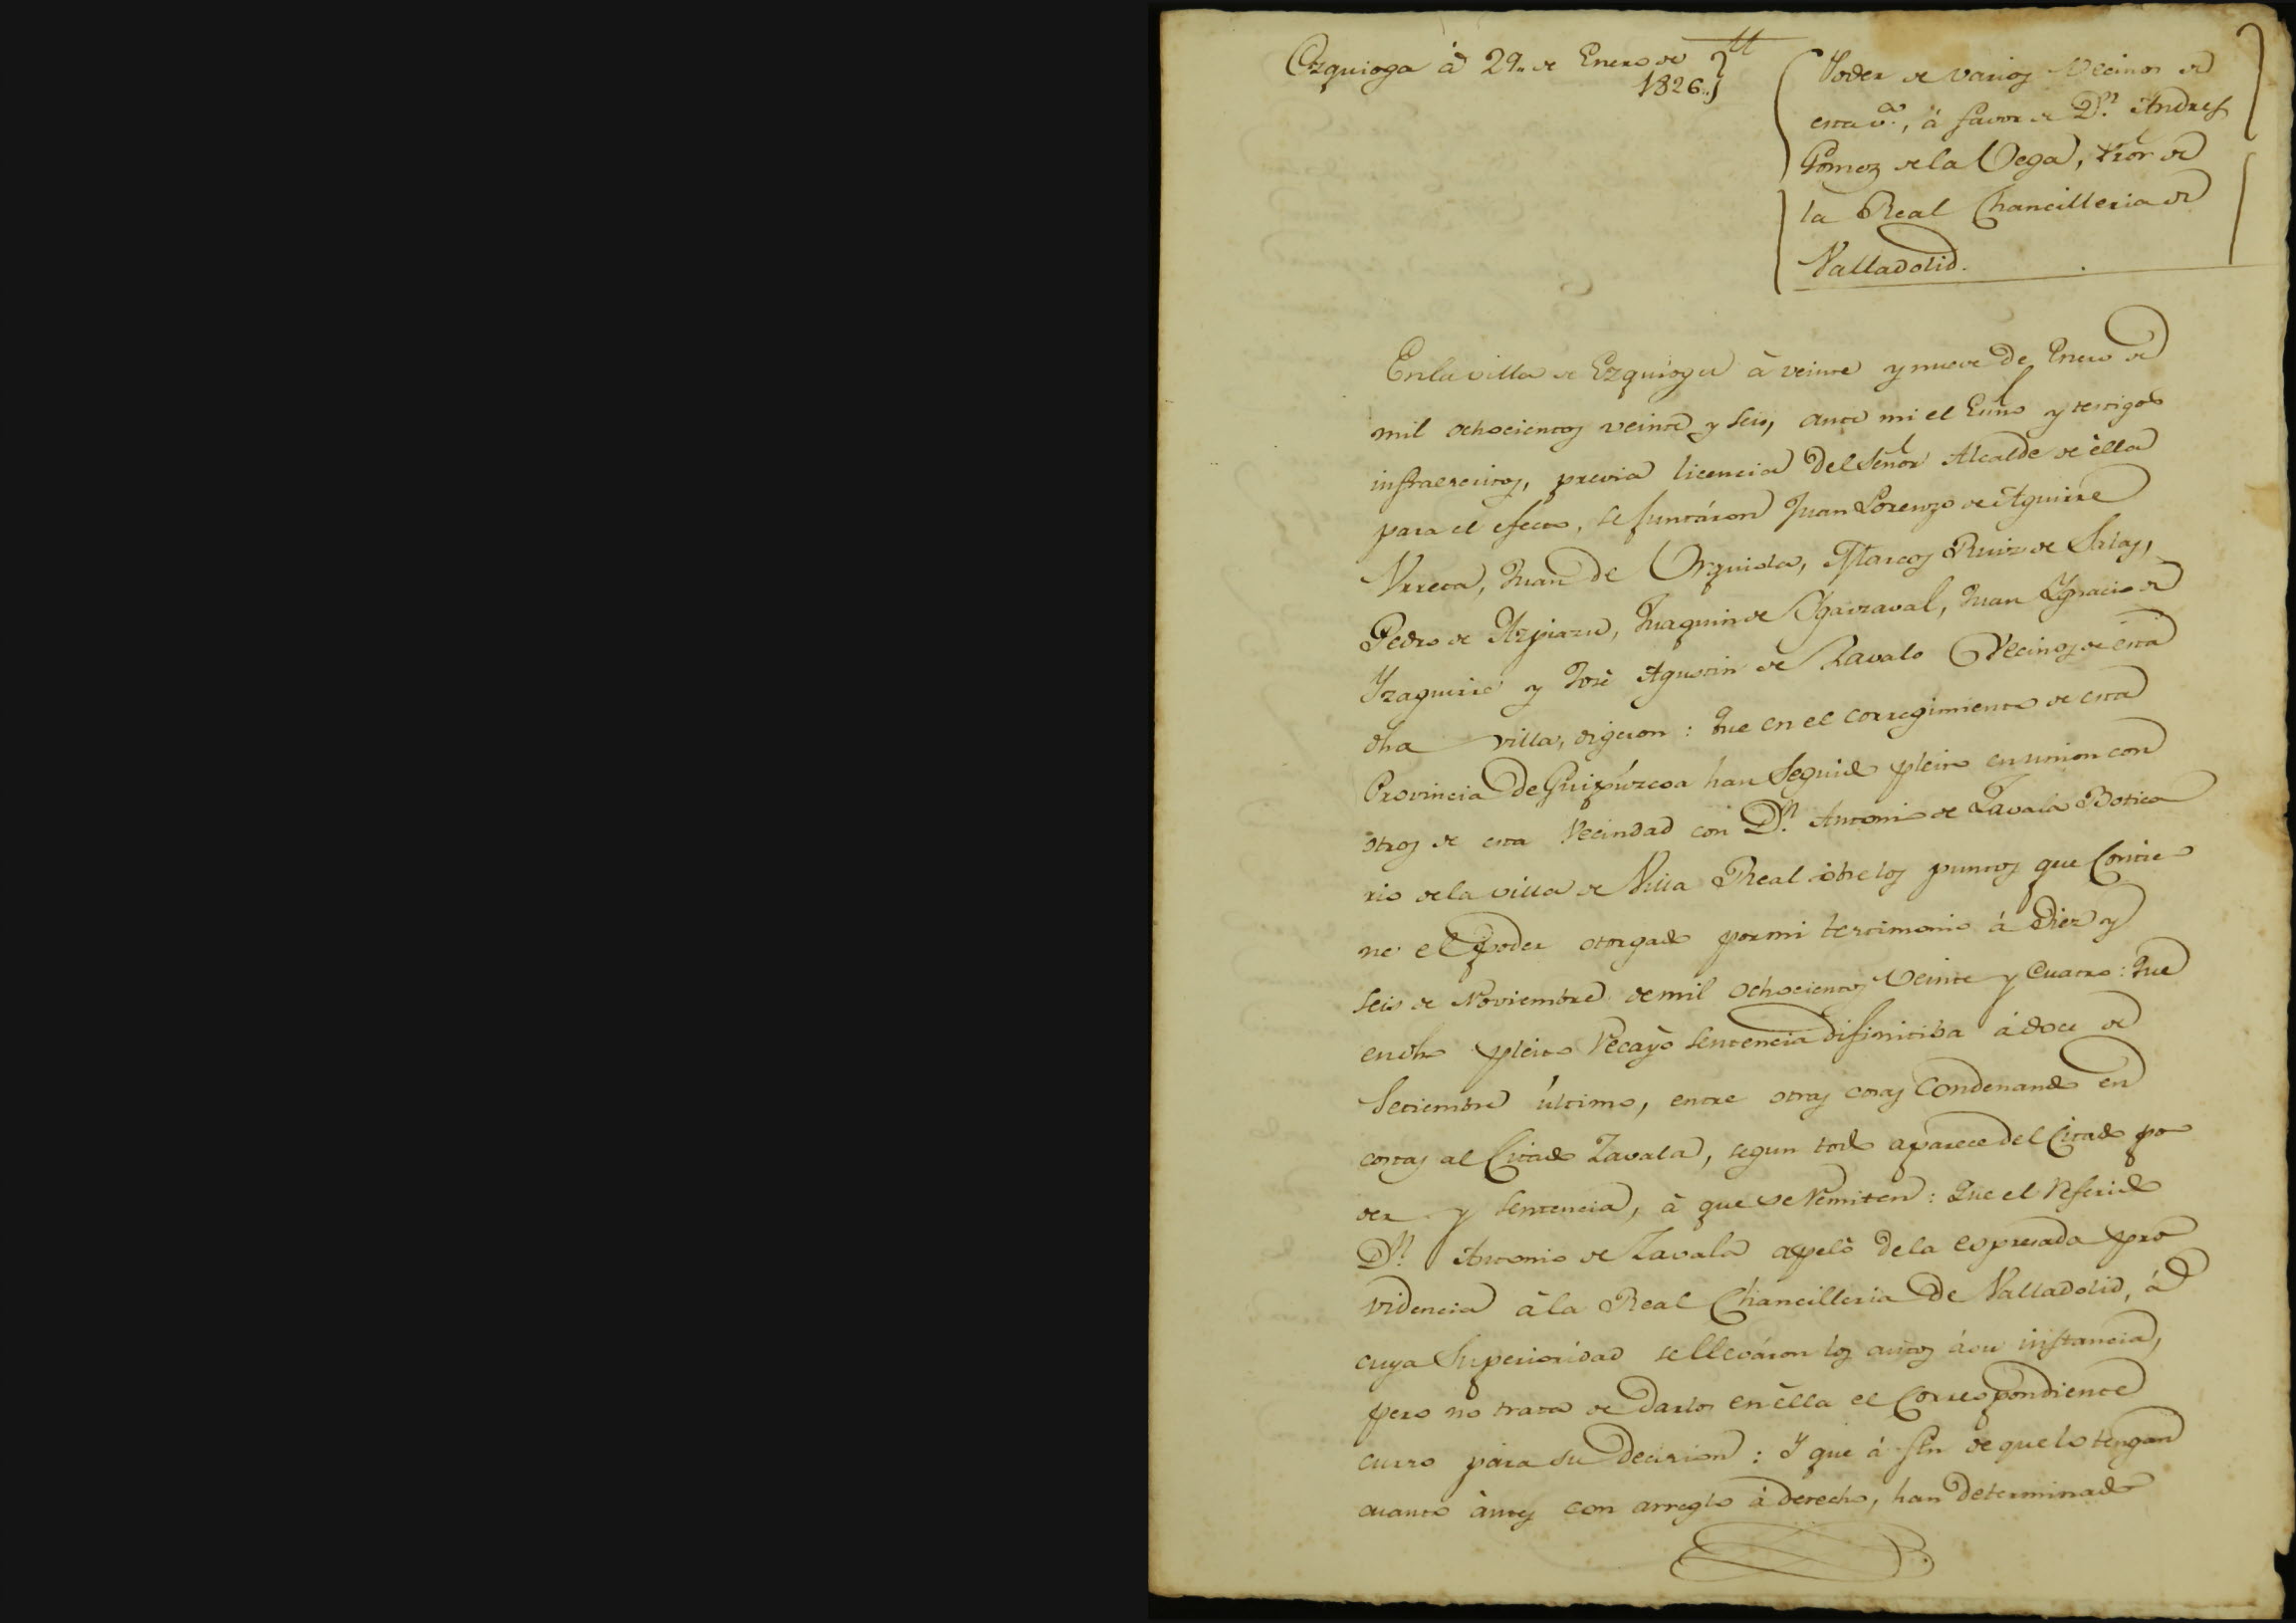 Ezquioga à 29.. de Enero de
1826..
Poder de varios Vecinos de
esta v.ª, à favor de D.n Andres
Gomez de la Vega, Pror de
la Real Chancilleria de
Valladolid.
En la villa de Ezquioga à veinte y nueve de Enero de
mil ochocientos veinte y seis, ante mi el Esno y testigos
infraescritos, previa licencia del Señor Alcalde de èlla
para el efecto, se juntáron Juan Lorenzo de Aguirre
Urreta, Juan de Urquiola, Marcos Ruiz de Salas,
Pedro de Azpiazu, Juaquin de Ygarzaval, Juan Ygnacio de
Yzaguirre y José Agustin de Zavalo Vecinos de ésta
dha villa, digeron: Que en el corregimiento de esta
Provincia de Guipúzcoa han seguido pleito en union con
otros de esta Vecindad con D.n Antonio de Zavala Botica
rio de la villa de Villa Real sobre los puntos que Contie
ne el poder otorgado por mi testimonio á Diez y
seis de Noviembre de mil ochocientos Veinte y Cuatro: Que
en dho pleito Recayò sentencia difinitiba á doce de
Setiembre último, entre otras cosas Condenando en
costas al Citado Zavala, segun todo aparece del Citado po
der y sentencia, à que se Remiten: Que el Referido
D.n Antonio de Zavala apelò de la espresada pro
videncia à la Real Chancilleria de Valladolid, á
cuya Superioridad se lleváron los autos á su instancia,
pero no trata de Darlos en èlla el Correspondiente
curso para su Decision: Y que á fin de que lo tengan
cuanto àntes con arreglo à derecho, han Determinado